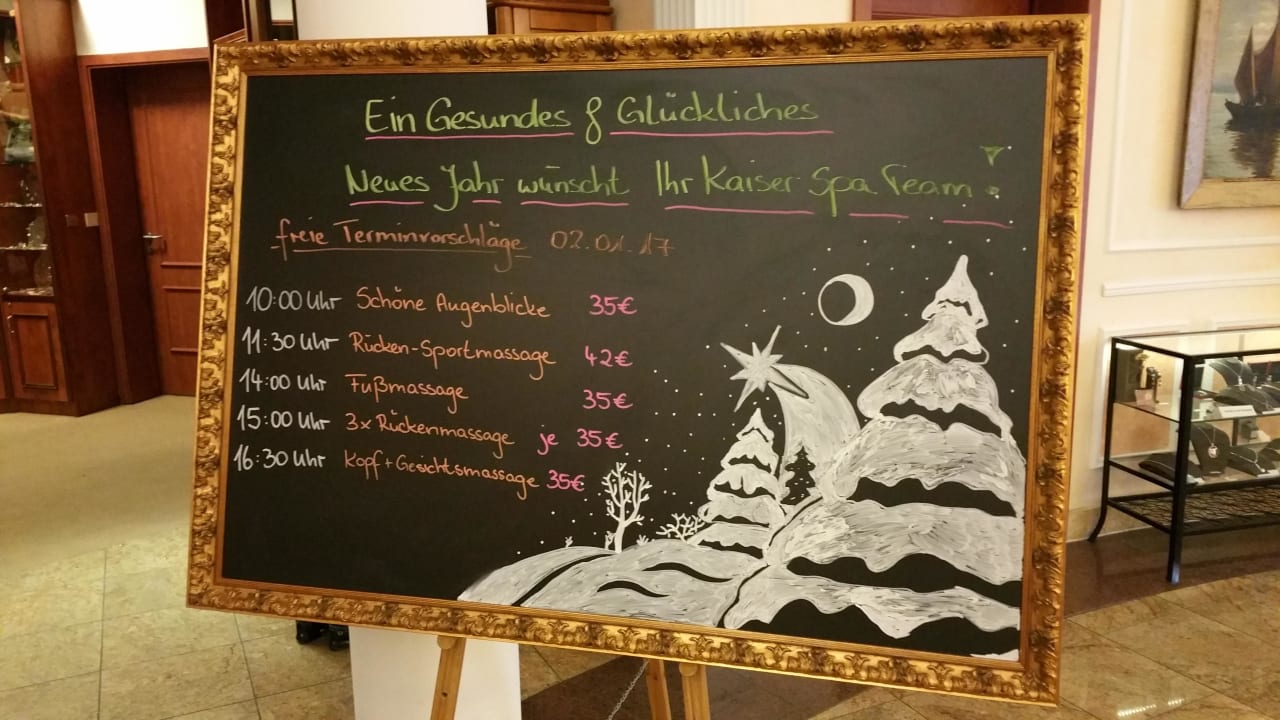 Ein Gesundes & Glückliches
Neues Jahr wünscht Ihr Kaiser Spa Team!
freie Terminvorschläge 02.01.17
10:00 Uhr Schöne Augenblicke 35€
11:30 Uhr Rücken-Sportmassage 42€
14:00 Uhr Fußmassage 35€
15:00 Uhr 3x Rückenmassage je 35€
16:30 Uhr Kopf+Gesichtsmassage 35€